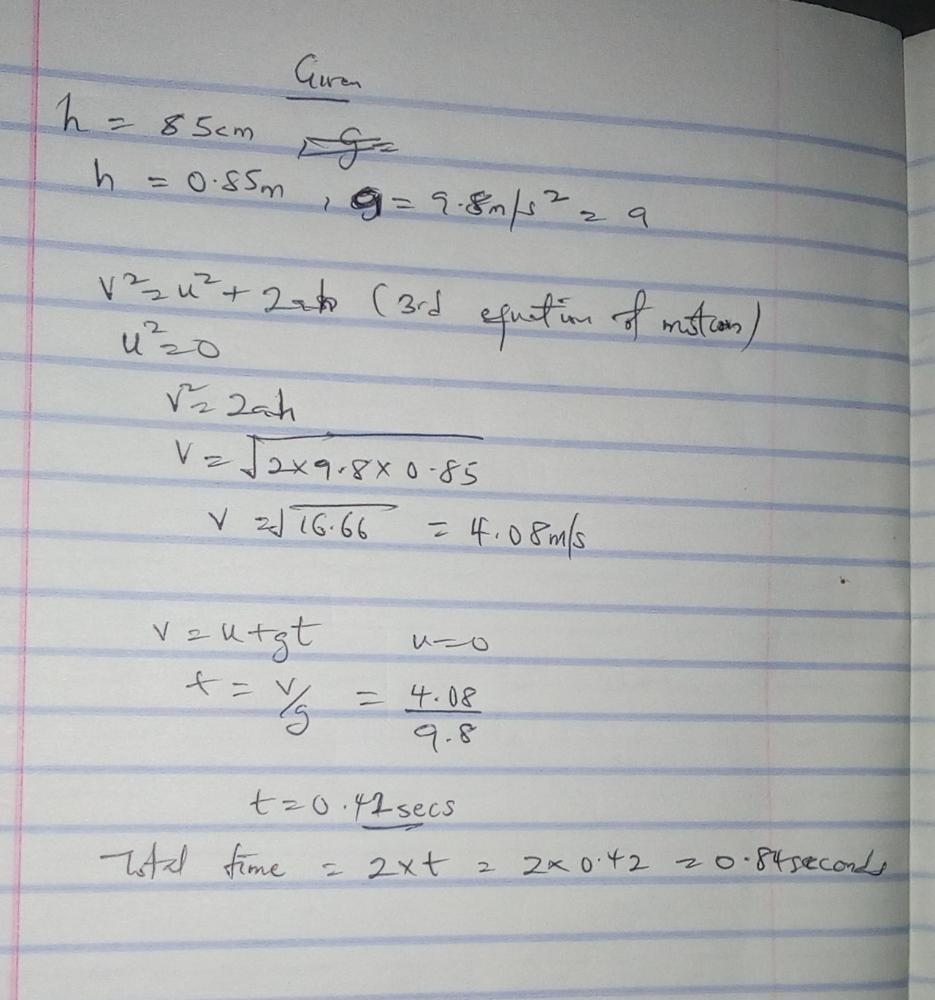 Given
h = 85cm
h = 0.85m , g = 9.8m/s² = a
v² = u² + 2ah (3rd equation of motion)
u² = 0
v² = 2ah
v = √2×9.8×0.85
v = √16.66 = 4.08m/s
v = u+gt u=0
t = v/g = 4.08/9.8
t = 0.42secs
Total time = 2×t = 2×0.42 = 0.84seconds